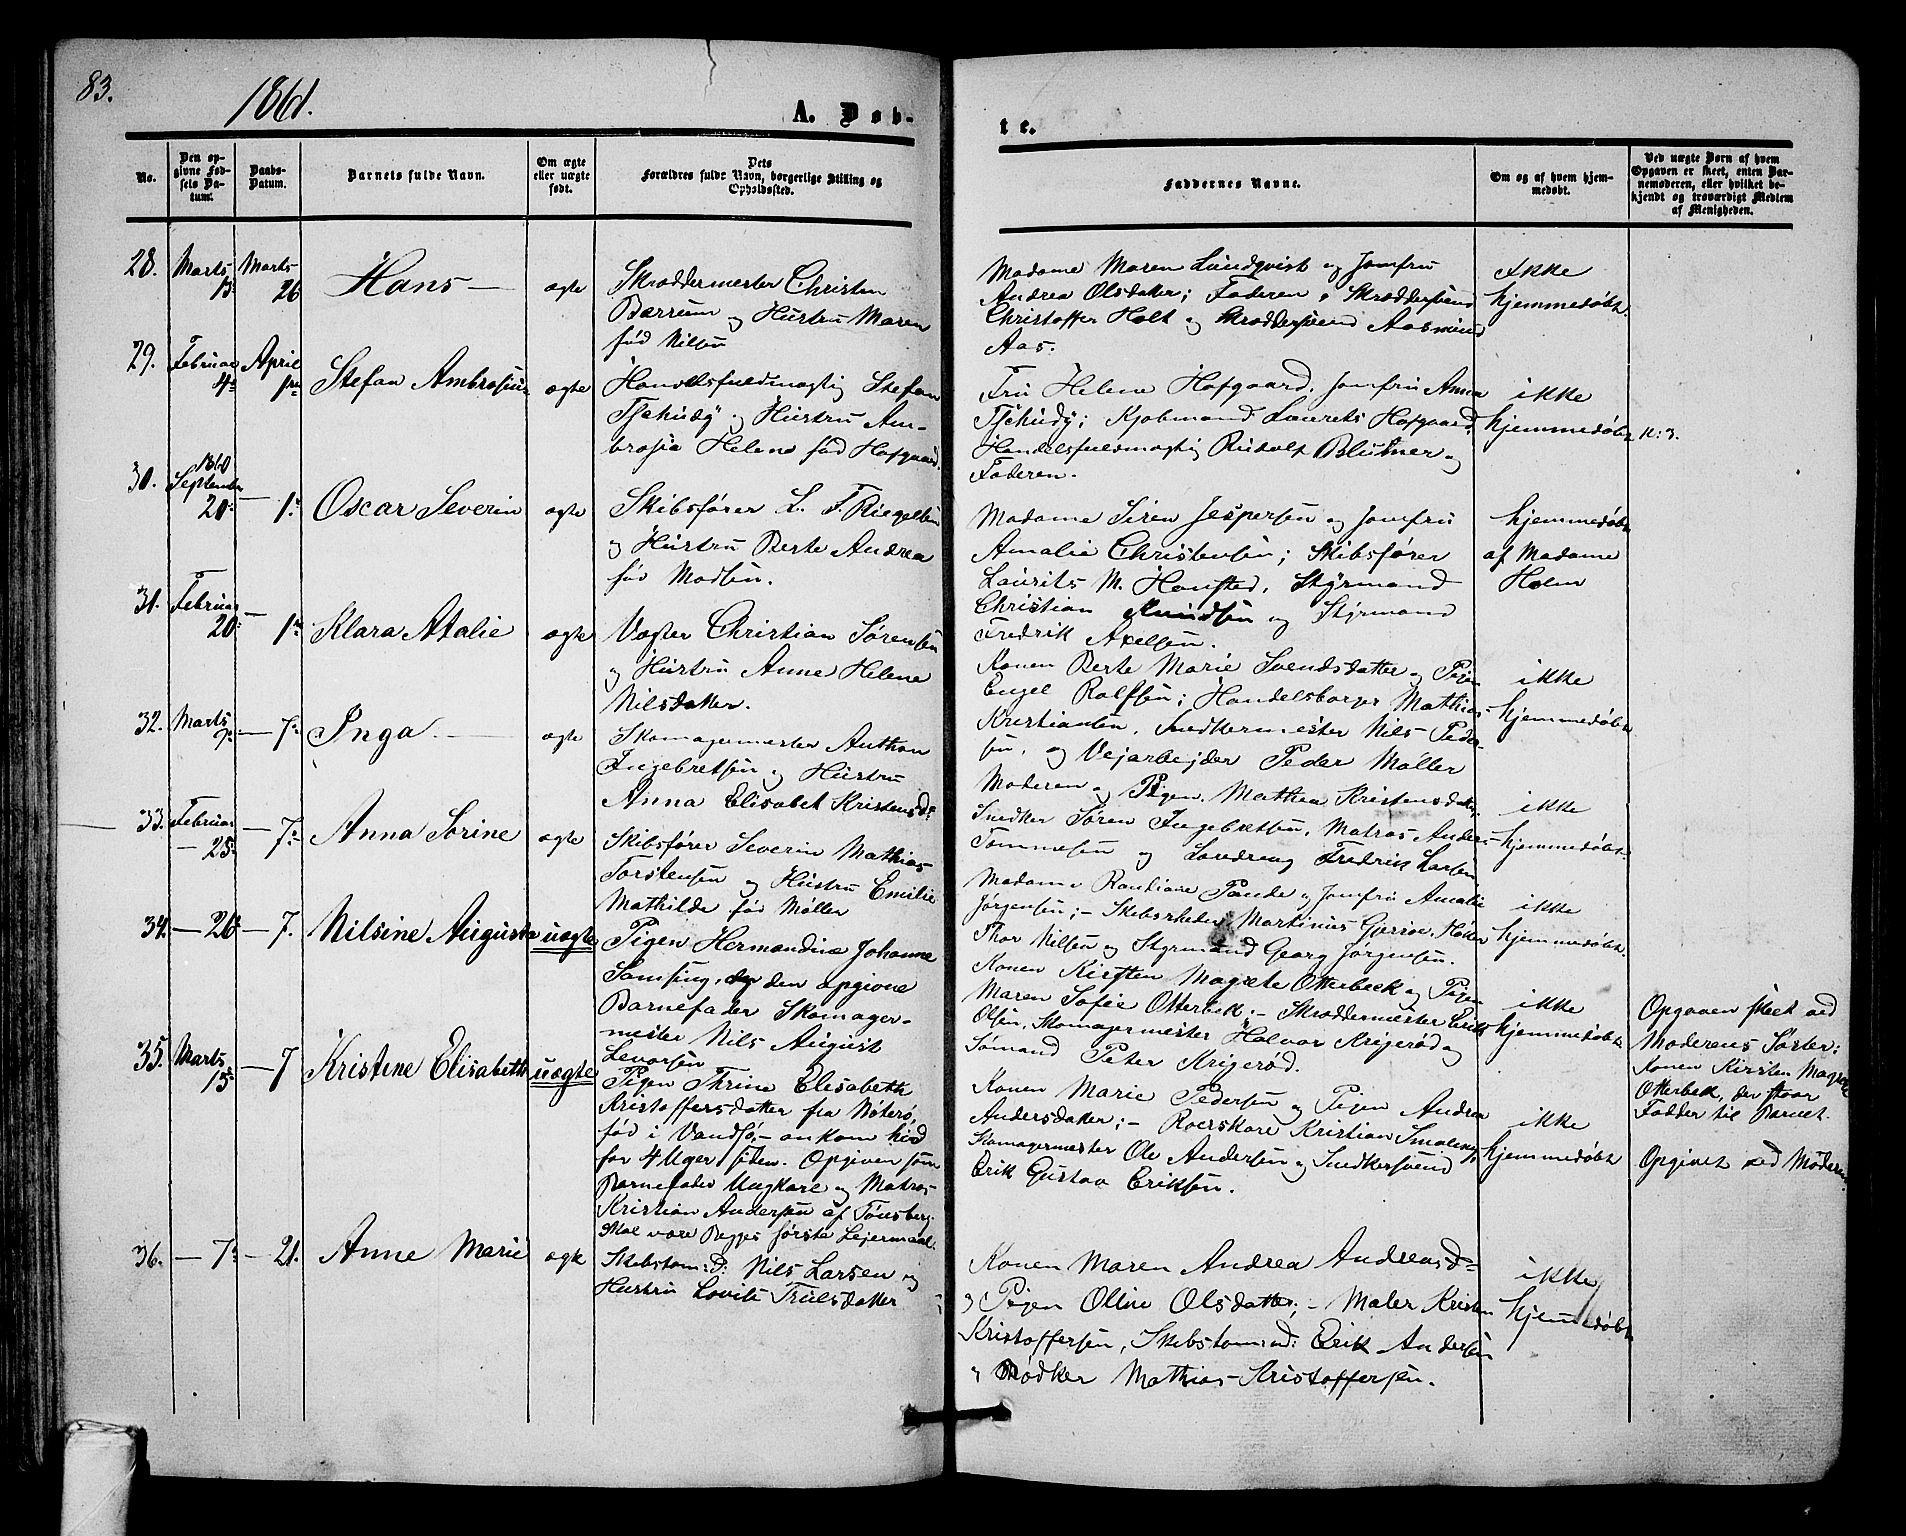 83.
1861.
A. Døb-
te.
No.
Den op-
givne Fød-
sels Da-
tum.
Daabs-
Datum.
Barnets fulde Navn.
Om ægte
eller uægte
født.
Dets
Forældres fulde Navn, borgerlige Stilling og
Opholdssted.
Faddernes Navne.
Om og af hvem hjem-
medøbt.
Ved uægte Børn af hvem
Opgaven er skeet, enten Bar-
nemoderen, eller hvilket be-
kjendt og troværdigt Medlem
af Menigheden.
28. Marts 13. Marts 26 Hans — ægte
Skræddermester Christen
Bærrum og Hustru Maren
fød Nilsen
Madame Maren Lundqvist og Jomfru
Andrea Olsdatter; Faderen, Skræddersvend
Christoffer Holt og Skræddersvend Aasmund
Aas.
Ikke
hjemmedøbt.
29. Februar 4. April 1ste Stefan Ambrosius ægte
Handelsfuldmægtig Stefan
Tschudy og Hustru Am-
brosia Helene fød Hofgaard.
Fru Helene Hofgaard, Jomfru Anna
Tschudy; Kjøbmand Laurits Hofgaard,
Handelsfuldmægtig Rudolf Blütner og
Faderen.
ikke
hjemmedøbt
N: 3.
30. 1860 September 20. — 1. Oscar Severin ægte
Skibsfører L. F. Riegelsen
og Hustru Berte Andrea
fød Madsen.
Madame Siren Jespersen og Jomfru
Amalie Christensen; Skibsfører
Laurits M. Hansted, Styrmand
Christian Knudsen og Styrmand
Fredrik Axelsen.
hjemmedøbt
af Madame
Holm
31. Februar 20. — 1ste Klara Atalie ægte
Vægter Christian Sørensen
og Hustru Anne Helene
Nilsdatter.
Konen Berte Marie Svendsdatter og Pigen
Engel Rolfsen; Handelsborger Mathias
Kristiansen, Snedkermester Nils Peder-
sen, og Vejarbejder Peder Møller
ikke
hjemmedøbt
32. Marts — 7. Inga. — ægte
Skomagermester Anthon
Ingebretsen og Hustru
Anna Elisabet Kristensd:
Moderen og Pigen Mathea Kristensdatter,
Snedker Søren Ingebretsen, Matros Anders
Tommesen og Fredrik Larsen
ikke
hjemmedøbt
33. Februar — 25. — 7. Anna Sorine ægte
Skibsfører Severin Mathias
Torstensen og Hustru Emilie
Mathilde fød Møller
Madame Pande og Jomfru Amalie
Jørgensen; — Skibsrheder Martinus
Thor Nilsen og Styrmand Georg Jørgensen.
ikke
hjemmedøbt
34. — 26 — 7. Nilsine Augusta uægte
Pigen Hermandine Johanne
Samsing, og den opgivne
Barnefader Skomager-
mester Nils August
Levorsen
Konen Kirsten Magrete Otterbeck og Pigen
Maren Sofie Otterbeck; — Skræddermester Erik
Olsen, Skomagermester Halvor Krigerød og
Sømand Peter Krigerød.
ikke
hjemmedøbt
Opgaven skeet ved
Moderens Søster:
Konen Kirsten Magrete
Otterbeck, der staar
Fadder til Barnet.
35. Marts 15. — 7 Kristine Elisabeth uægte
Pigen Thrine Elisabeth
Kristoffersdatter fra Nøterø,
fød i Vandsø, — ankom hid
for 4 Uger siden. Opgiven som
Barnefader Ungkarl og Matros
Kristian Andersen af Tønsberg.
Skal være Begges første Lejermaal.
Konen Marie Pedersen og Pigen Andrea
Andersdatter; — Roerskarl Kristian Smalens,
Skomagermester Ole Andersen og Snedkersvend
Erik Gustav Eriksen.
ikke
hjemmedøbt
Opgivet ved Moderen.
36. — 7. — 21. Anne Marie ægte
Skibstømd: Nils Larsen og
Hustru Lovise Trulsdatter
Konen Maren Andrea Andreasd=
og Pigen Oline Olsdatter; — Maler Kristen
Kristoffersen, Skibstømmd: Erik Andersen
og Bødker Mathias Kristoffersen.
ikke
hjemmedøbt